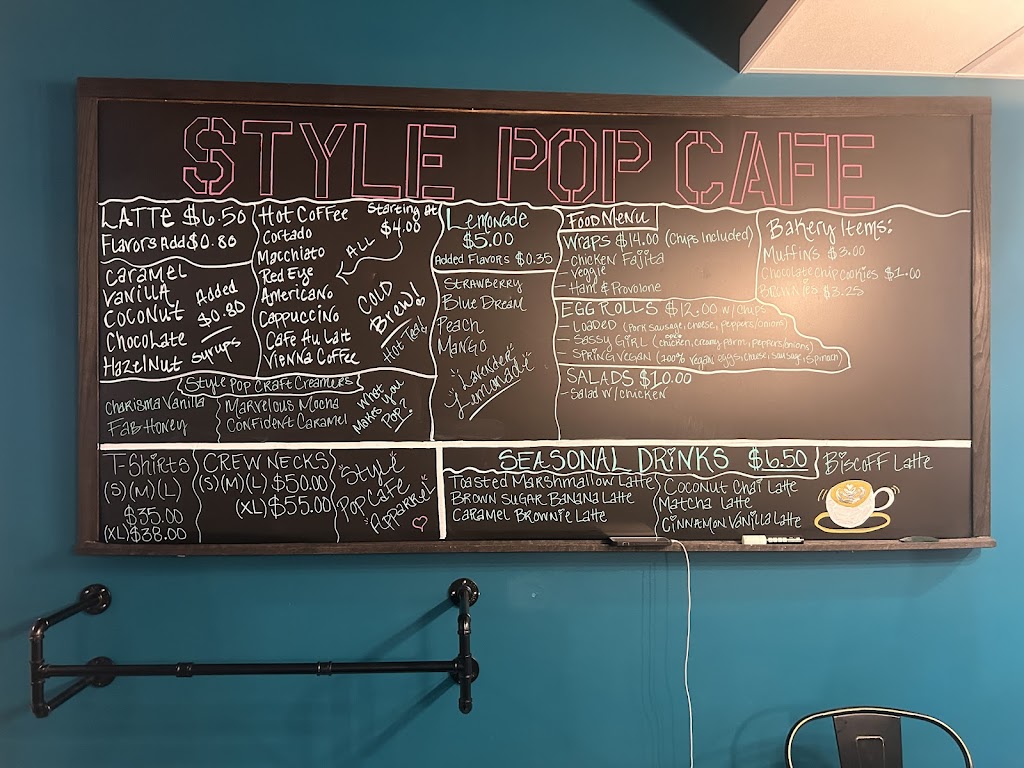 STYLE POP CAFE
LATTE $6.50
Flavors Add $0.80
CARAMEL
VANILLA
COCONUT
Chocolate
HazelNut
Added
$0.80
Syrups
Hot Coffee
Starting At
$4.00
ALL
Cortado
Macchiato
Red Eye
AMERICANO
CAPPUCCINO
CAFE AU LAIT
VIENNA COFFEE
COLD
BREW!
HOT Tea!
Style Pop Craft Creamers
Charisma Vanilla
FAB HONEY
MARVELOUS MOCHA
CONFIDENT CARAMEL
What
Makes you
Pop?
Lemonade
$5.00
Added Flavors $0.35
STRAWBERRY
Blue Dream
Peach
MANGO
Lavender
Lemonade
FOOD MENU
WRAPS $14.00 (Chips Included)
- Chicken Fajita
- Veggie
- Ham & Provolone
EGG ROLLS $12.00 w/ Chips
- LOADED (Pork sausage, cheese, peppers/onions)
- SASSY GIRL (chicken, creamy parm, peppers/onions)
- SPRING VEGAN (100% vegan eggs, cheese, sausage, spinach)
SALADS $10.00
- Salad w/ chicken
Bakery Items:
Muffins $3.00
Chocolate chip cookies $1.00
Brownies $3.25
T-Shirts
(S)(M)(L)
$35.00
(XL) $38.00
CREW NECKS
(S)(M)(L) $50.00
(XL) $55.00
Style
Pop Cafe
Apparel
SEASONAL DRINKS $6.50
TOASTED MARSHMALLOW LATTE
BROWN SUGAR BANANA LATTE
CARAMEL BROWNIE LATTE
COCONUT CHAI LATTE
MATCHA LATTE
CINNAMON VANILLA LATTE
BISCOFF LATTE